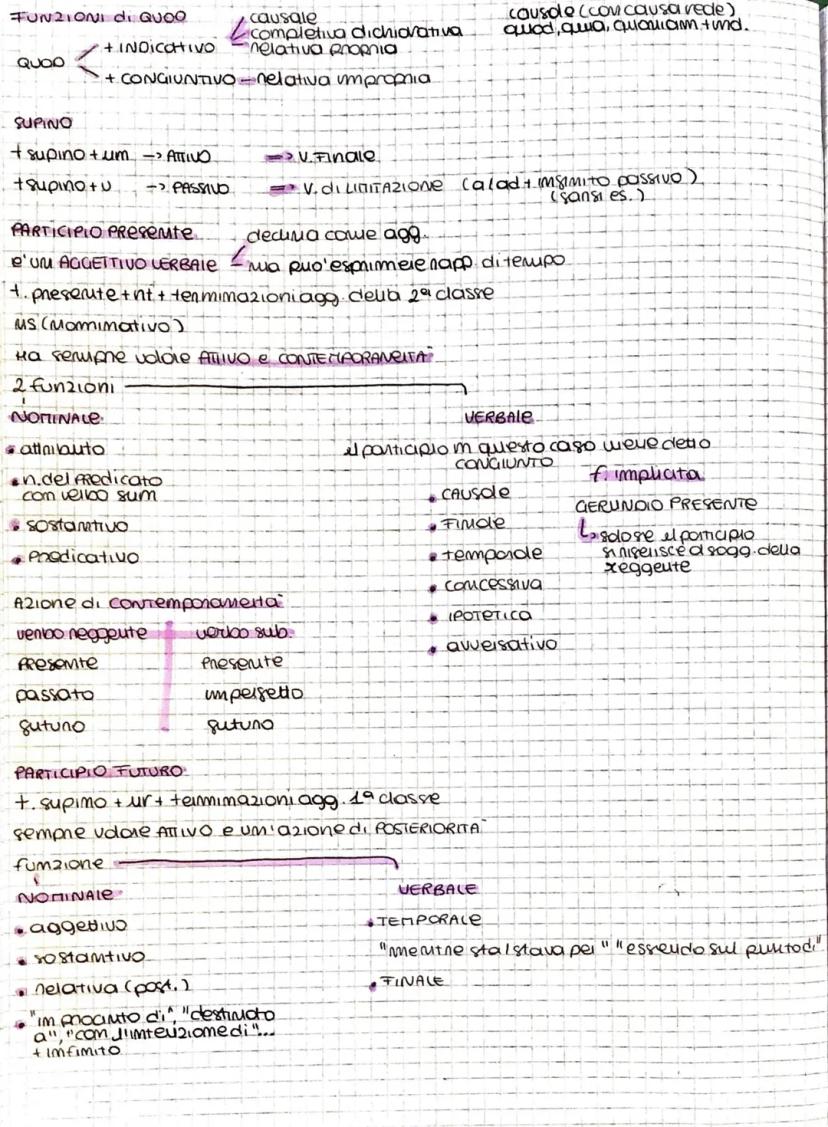 FUNZIONI di QUOD
causale
completiva dichiarativa
relativa propria
causale (con causa reale)
quod, quia, quoniam + ind.
QUOD
+ INDICATIVO
+ CONGIUNTIVO – relativa impropria
SUPINO
t supino + um -> ATTIVO => V. Finale
t supino + u -> PASSIVO => V. di LIMITAZIONE (a/ad + infinito passivo)
(farsi es.)
PARTICIPIO PRESENTE
declina come agg.
E' UN AGGETTIVO VERBALE
ma può esprimere rapp di tempo
t. presente + nt + terminazioni agg. della 2ª classe
NS (Nominativo)
Ha sempre valore ATTIVO e CONTEMPORANEITA'
2 funzioni
NOMINALE
• attributo
• n. del PREDICATO
con verbo sum
• sostantivo
• Predicativo
VERBALE
il participio in questo caso viene detto
CONGIUNTO
• CAUSALE
• Finale
• temporale
• concessiva
• IPOTETICA
• avversativo
f. implicita
GERUNDIO PRESENTE
solo se il participio
si riferisce al sogg. della
reggente
Azione di contemporaneità
verbo reggente | verbo sub.
Presente | Presente
passato | imperfetto
futuro | futuro
PARTICIPIO FUTURO
t. supino + ur + terminazioni agg. 1ª classe
sempre valore ATTIVO e un'azione di POSTERIORITA'
funzione
NOMINALE
• aggettivo
• sostantivo
• relativa (post.)
• "in procinto di", "destinato
a", "con l'intenzione di"...
+ infinito
VERBALE
• TEMPORALE
"mentre sta/stava per" "essendo sul punto di"
• FINALE